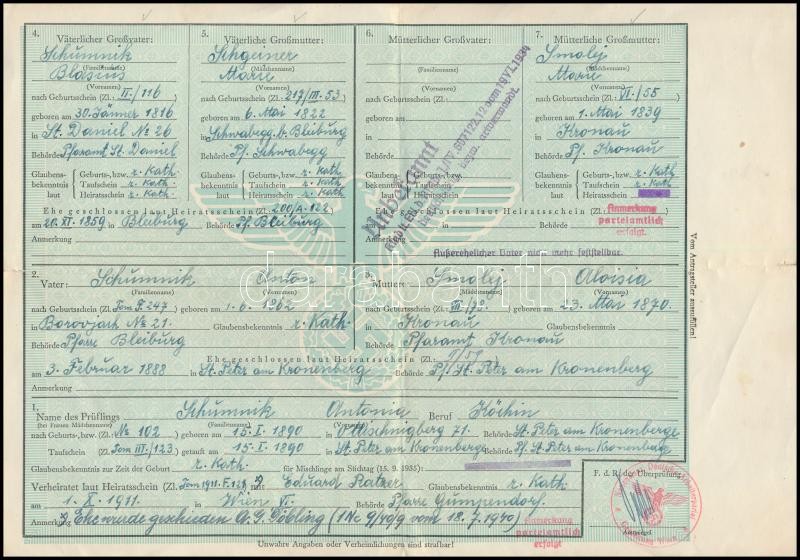 4. Väterlicher Großvater:
Schumnik
(Familienname)
Blasius
(Vornamen)
nach Geburtsschein (Zl.: II/116)
geboren am 30. Jänner 1816
in St. Daniel № 26
Behörde Pfaramt St. Daniel
Glaubensbekenntnis laut
Geburts-, bzw. r. Kath.
Taufschein r. Kath.
Heiratsschein r. Kath.
5. Väterlicher Großmutter:
(Mädchenname)
Marie
(Vornamen)
nach Geburtsschein (Zl.: 217/III-53)
geboren am 6. Mai 1822
in Schwabegg b. Bleiburg
Behörde Pf. Schwabegg
Glaubensbekenntnis laut
Geburts-, bzw. r. Kath
Taufschein r. Kath.
Heiratsschein r. Kath.
Ehe geschlossen laut Heiratsschein (Zl.:
am 20. XI. 1859 in Bleiburg Behörde Pf. Bleiburg
Anmerkung
6. Mütterlicher Großvater:
(Familienname)
(Vornamen)
nach Geburtsschein (Zl.:
geboren am
in
Behörde
Glaubensbekenntnis laut
Geburts-, bzw.
Taufschein
Heiratsschein
Unbekannt
7. Mütterliche Großmutter:
Smolej
(Mädchenname)
Marie
(Vornamen)
nach Geburtsschein (Zl.: VI/55
geboren am 1. Mai 1839
in Kronau
Behörde Pf. Kronau
Glaubensbekenntnis laut
Geburts-, bzw. r. Kath
Taufschein r. Kath.
Heiratsschein
Ehe geschlossen laut Heiratsschein (Zl.:
Anmerkung
parteiamtlich
erfolgt.
Außerehelicher Vater nicht mehr feststellbar.
2. Vater: Schumnik Anton
(Familienname) (Vornamen)
nach Geburtsschein (Zl.: Tom F. 247 geboren am 1. 6. 1862
in № 21. Glaubensbekenntnis r. Kath
Behörde Pfarre Bleiburg
3. Mutter: Smolej Aloisia
(Mädchenname) (Vornamen)
geboren am 23. Mai 1870.
in Kronau Glaubensbekenntnis
Behörde Pfaramt Kronau
Ehe geschlossen laut Heiratsschein (Zl.:
am 3. Februar 1888 in St. Peter am Kronenberg Behörde Pf. St. Peter am Kronenberg
Anmerkung
1. Name des Prüflings Schumnik Antonia Beruf Köchin
(bei Frauen Mädchenname) (Familienname) (Vornamen)
nach Geburts-, bzw. (Zl.: № 102 geboren am 15. I. 1890 in Ottschnigberg 71. Behörde St. Peter am Kronenberge
Taufschein (Zl.: Tom III/123 getauft am 15. I. 1890 in St. Peter am Kronenberg Behörde Pf. St. Peter am Kronenberge
Glaubensbekenntnis zur Zeit der Geburt r. Kath (für Mischlinge am Stichtag (15. 9. 1935):
Verheiratet laut Heiratsschein (Zl.: mit Eduard Glaubensbekenntnis r. Kath.
am 1. X. 1911. in Wien VI. Behörde Pfarre Gumpendorf.
Anmerkung Ehe wurde geschieden A. G. Döbling (1 Nc 9/40/9 vom 18. 7. 1940)
Anmerkung
parteiamtlich
erfolgt
F. d. R. der Überprüfung
Unwahre Angaben oder Verheimlichungen sind strafbar!
Vom Antragsteller auszufüllen!
darabanth